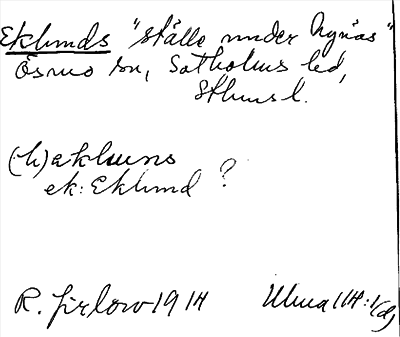 Eklunds "ställe under Nynäs"
Ösmo sn, Sotholms hd,
Sthms l.
(-h)ekluns
ek: Eklund ?
R. Jirlow 1914 Ulma 114:1(d)